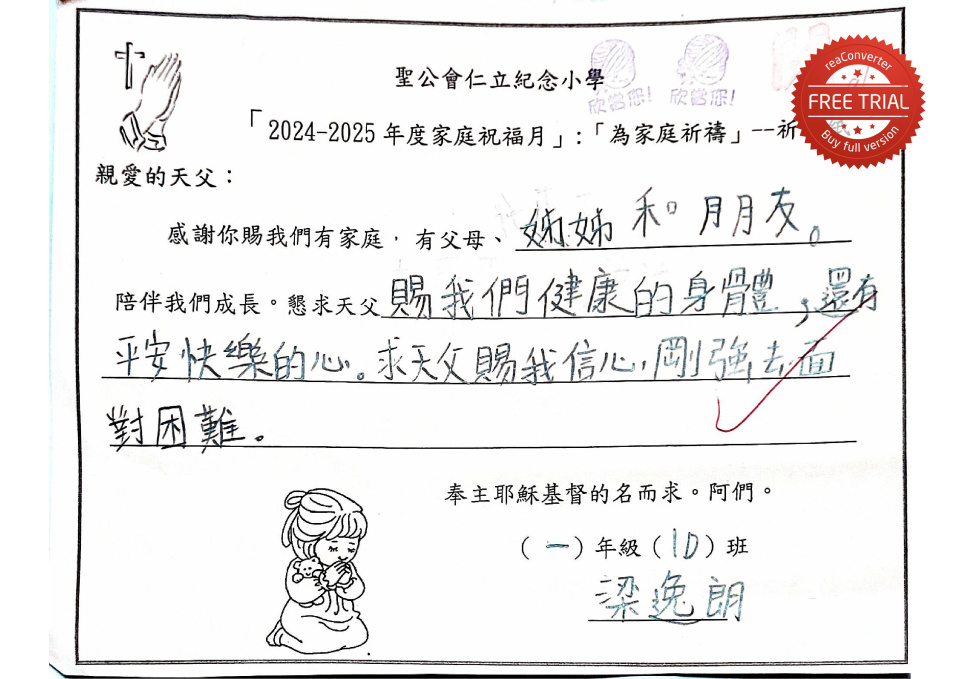 聖公會仁立紀念小學
欣賞您! 欣賞您!
reaConverter
FREE TRIAL
Buy full version
「2024-2025 年度家庭祝福月」:「為家庭祈禱」--祈
親愛的天父：
感謝你賜我們有家庭，有父母、姊姊和朋友。
陪伴我們成長。懇求天父賜我們健康的身體，還有
平安快樂的心。求天父賜我信心,剛強去面
對困難。
奉主耶穌基督的名而求。阿們。
（一）年級（1D）班
梁逸朗